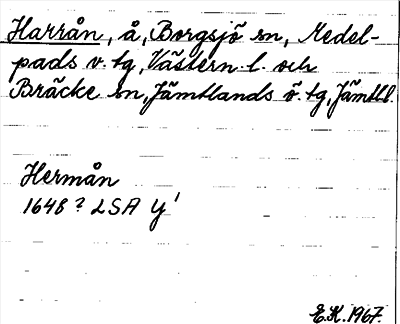 Harrån, å, Borgsjö sn, Medel-
pads v. tg, Västern.l. och
Bräcke sn, Jämtlands ö. tg, Jämtl.l.
Hermån
1648? LSA Y'
E.K. 1967.